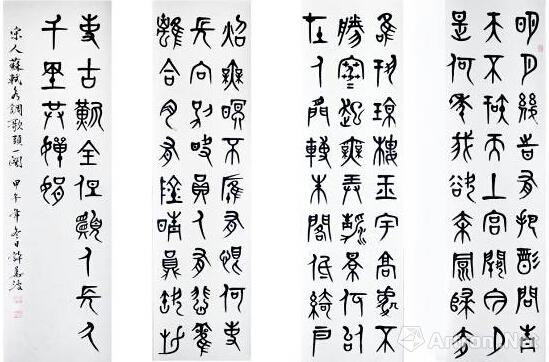 明月幾時有把酒問青
天不知天上宮闕今夕
是何年我欲乘風歸去
唯恐瓊樓玉宇高處不
勝寒起舞弄清影何似
在人間轉朱閣低綺戶
照無眠不應有恨何事
長向別時圓人有悲歡
離合月有陰晴圓缺此
事古難全但願人長久
千里共嬋娟
宋人蘇軾水調歌頭一闋 甲午年冬日
Artron.Net